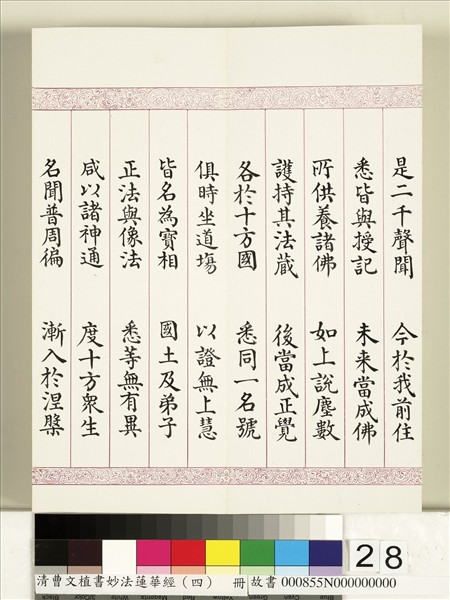 是二千聲聞　今於我前住
悉皆與授記　未来當成佛
所供養諸佛　如上說塵數
護持其法藏　後當成正覺
各於十方國　悉同一名號
俱時坐道塲　以證無上慧
皆名為寶相　國土及弟子
正法與像法　悉等無有異
咸以諸神通　度十方衆生
名聞普周徧　漸入於涅槃
28
清曹文植書妙法蓮華經（四）　冊 故書 000855N000000000